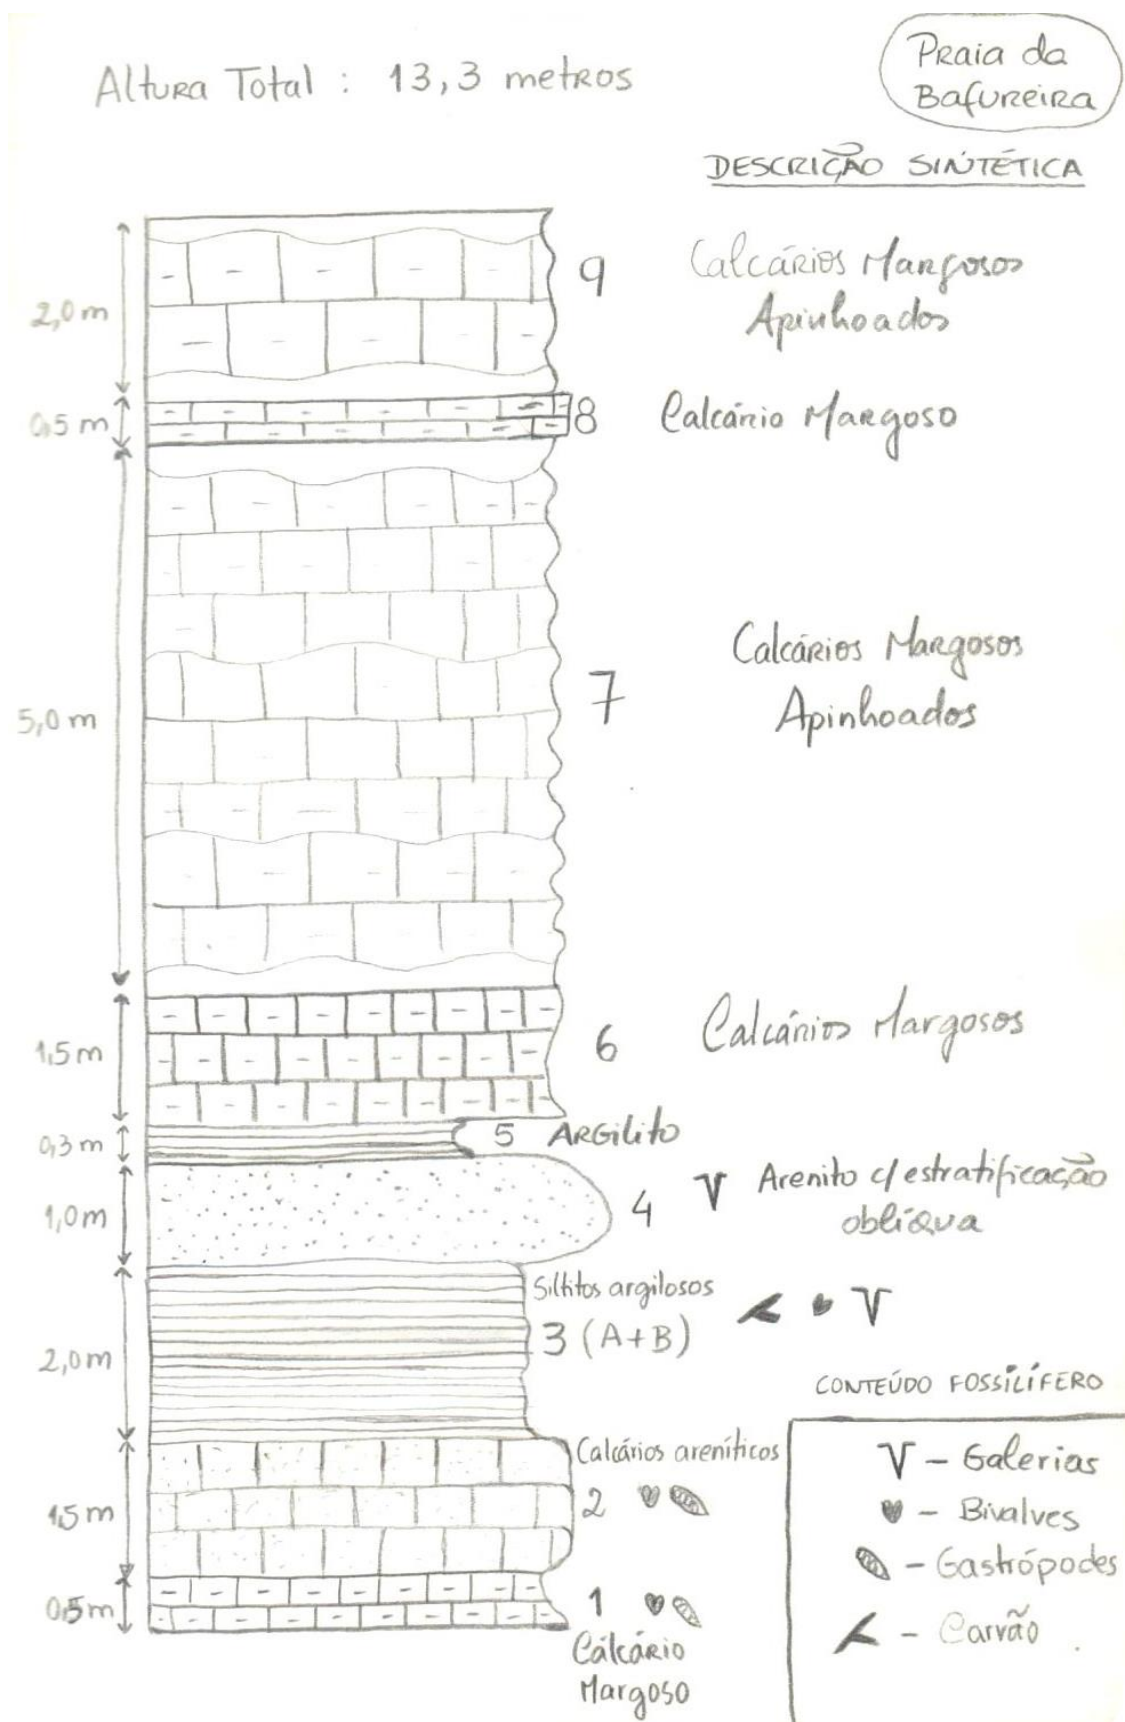 Altura Total : 13,3 metros
Praia da
Bafureira
DESCRIÇÃO SINTÉTICA
2,0 m
9
Calcários Margosos
Apinhoados
0,5 m
8
Calcário Margoso
5,0 m
7
Calcários Margosos
Apinhoados
1,5 m
6
Calcários Margosos
0,3 m
5 ARGILITO
1,0 m
4
V Arenito c/ estratificação
oblíqua
2,0 m
Siltitos argilosos
3 (A+B)
V
1,5 m
Calcários areníticos
2
0,5 m
1
Cálcário
Margoso
CONTEÚDO FOSSILÍFERO
V - Galerias
- Bivalves
- Gastrópodes
- Carvão